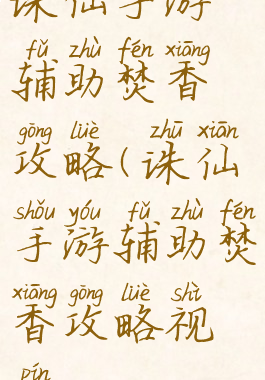 诛仙手游
fǔ zhù fén xiāng
辅助焚香
gōng lüè zhū xiān
攻略(诛仙
shǒu yóu fǔ zhù fén
手游辅助焚
xiāng gōng lüè shì
香攻略视
pín